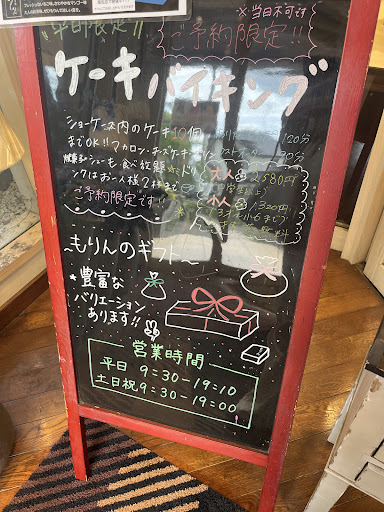 ※当日不可です
平日限定!!
ご予約限定!!
ケーキバイキング
ショーケース内のケーキ10個
までOK!! マカロン・
シューも食べ放題
ドリ
ンクはお一人様2杯まで
ご予約限定です!!
120分
90分
大人
2580円
小人
1,320円
小6まで
～もりんのギフト～
*豊富な
バリエーション
あります!!
営業時間
平日 9:30-19:10
土日祝 9:30-19:00